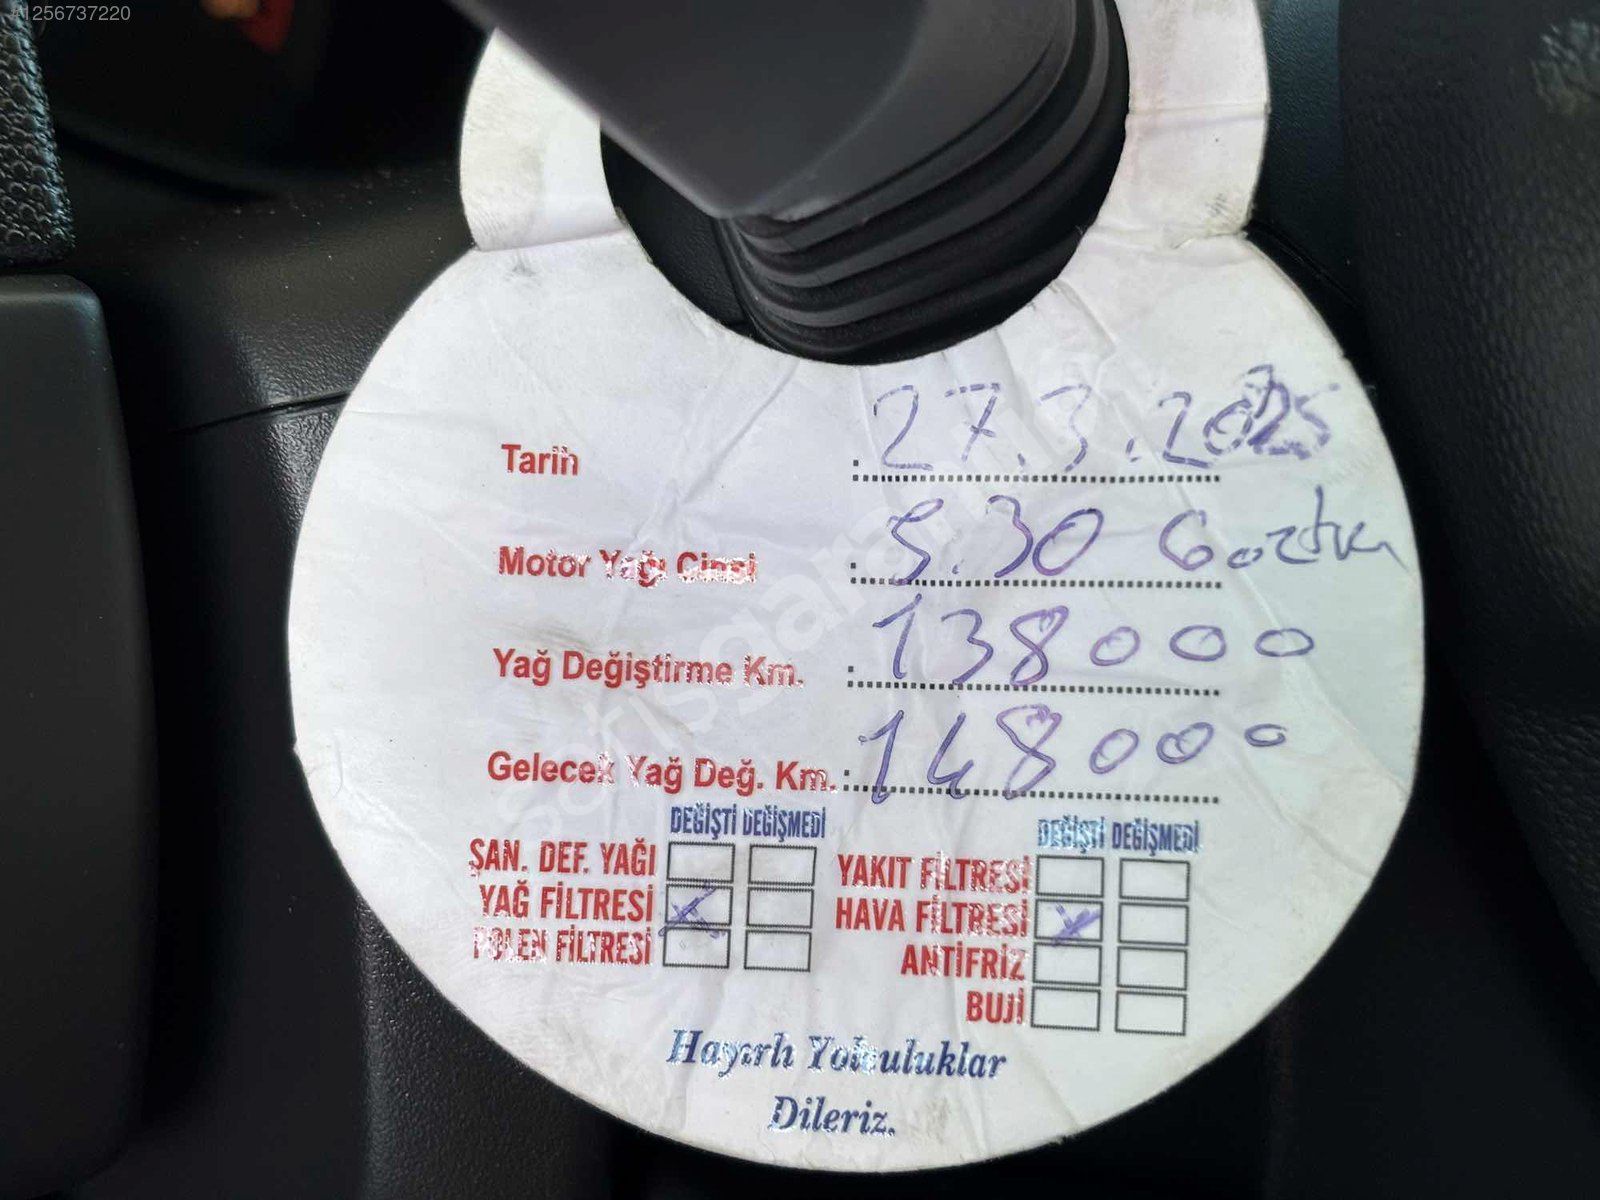 #1256737220
Tarih : 27.3.2025
Motor Yağı Cinsi : 5.30
Yağ Değiştirme Km. : 138000
Gelecek Yağ Değ. Km. : 148000
DEĞİŞTİ DEĞİŞMEDİ DEĞİŞTİ DEĞİŞMEDİ
ŞAN. DEF. YAĞI YAKIT FİLTRESİ
YAĞ FİLTRESİ X HAVA FİLTRESİ X
POLEN FİLTRESİ ANTİFRİZ
BUJİ
Hayırlı Yolculuklar
Dileriz.